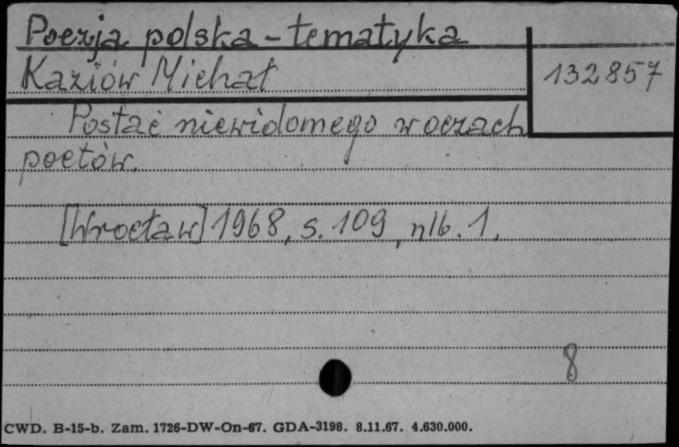 Poezja polska - tematyka
Kaziów Michał
132857
Postać niewidomego w oczach
poetów.
[Wrocław] 1968, s. 109, nlb. 1.
8
CWD. B-15-b. Zam. 1726-DW-On-67. GDA-3198. 8.11.67. 4.630.000.